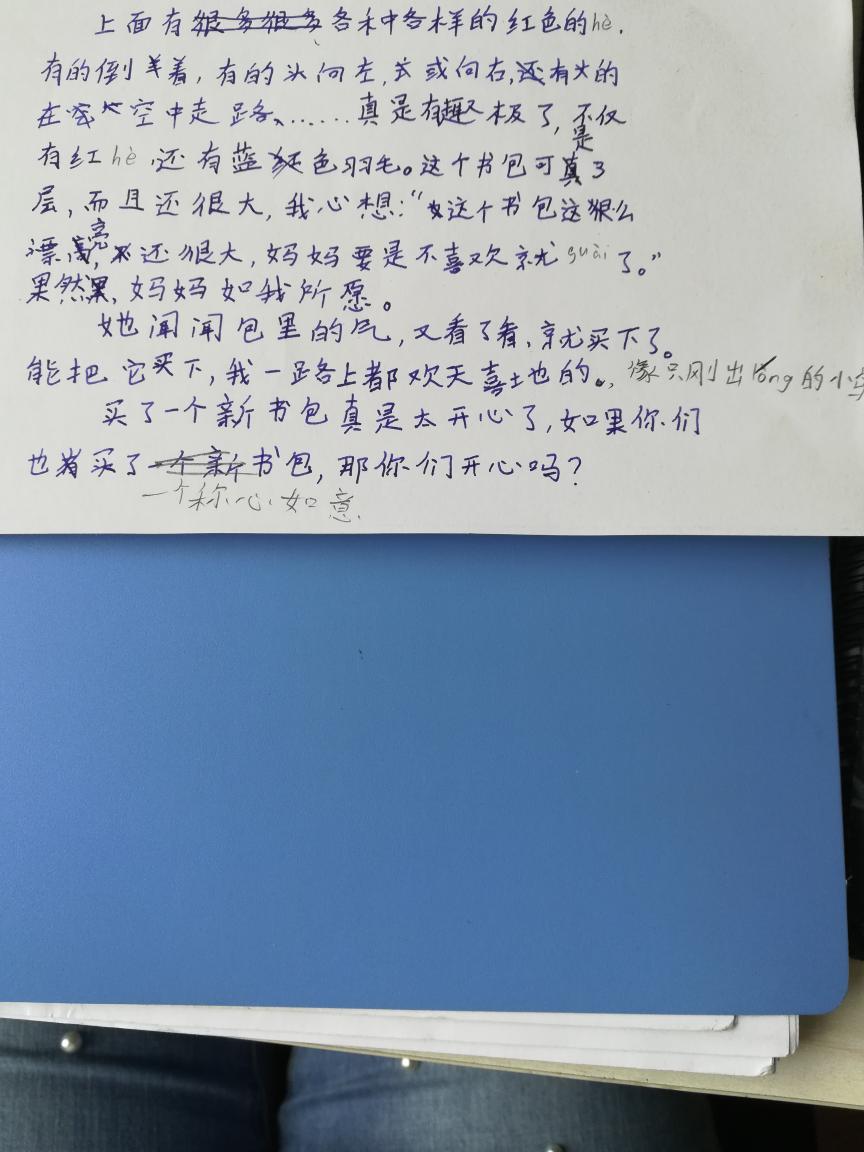 上面有各种各样的红色的hè.
有的倒羊着，有的头向左，或向右，还有的
在空中走路、……真是有趣极了，不仅
有红hè，还有蓝色羽毛。这个书包可真是3
层，而且还很大，我心想：“这个书包这么
漂亮，还很大，妈妈要是不喜欢就guài了。”
果然，妈妈如我所愿。
她闻闻包里的气，又看了看，就买下了。
能把它买下，我一路上都欢天喜地的，像只刚出lóng的小
买了一个新书包真是太开心了，如果你们
也买了书包，那你们开心吗？
一个称心如意